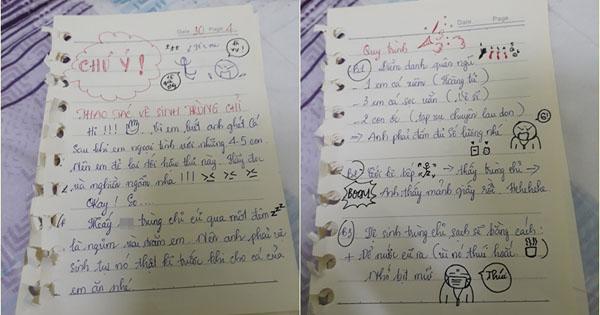 Date 10 Page 4
CHÚ Ý!
THAO TÁC VỆ SINH TRÙNG CHỈ
Hi !!! Vì em biết anh ghét cá
Sau khi em ngoại tình với những 4-5 con.
Nên em để lại tối hậu thư này. Hãy đọc
và nghiền ngẫm nha !!! >< >< ><
Okay! So...
trùng chỉ cứ qua một đêm zzz
là ngủm vài trăm em. Nên anh phải vệ
sinh tụi nó thật kĩ trước khi cho cá của
em ăn nhé
Date Page
Quy trình
B1 Điểm danh quân ngũ
_ 1 em cá xiêm (Hoàng tử)
_ 3 em cá sọc (vệ sĩ)
_ 2 con ốc (tạp vụ chuyên lau dọn)
=> Anh phải đếm đủ số lượng nhé
B2 kế bếp => thấy trùng chỉ =>
BOOM! Anh thấy mảnh giấy rồi. Hehehehe
B3 Vệ sinh trùng chỉ sạch sẽ bằng cách:
+ Đổ nước cũ ra (vì nó thúi hoắc)
Nhớ bịt mũi
Thúi